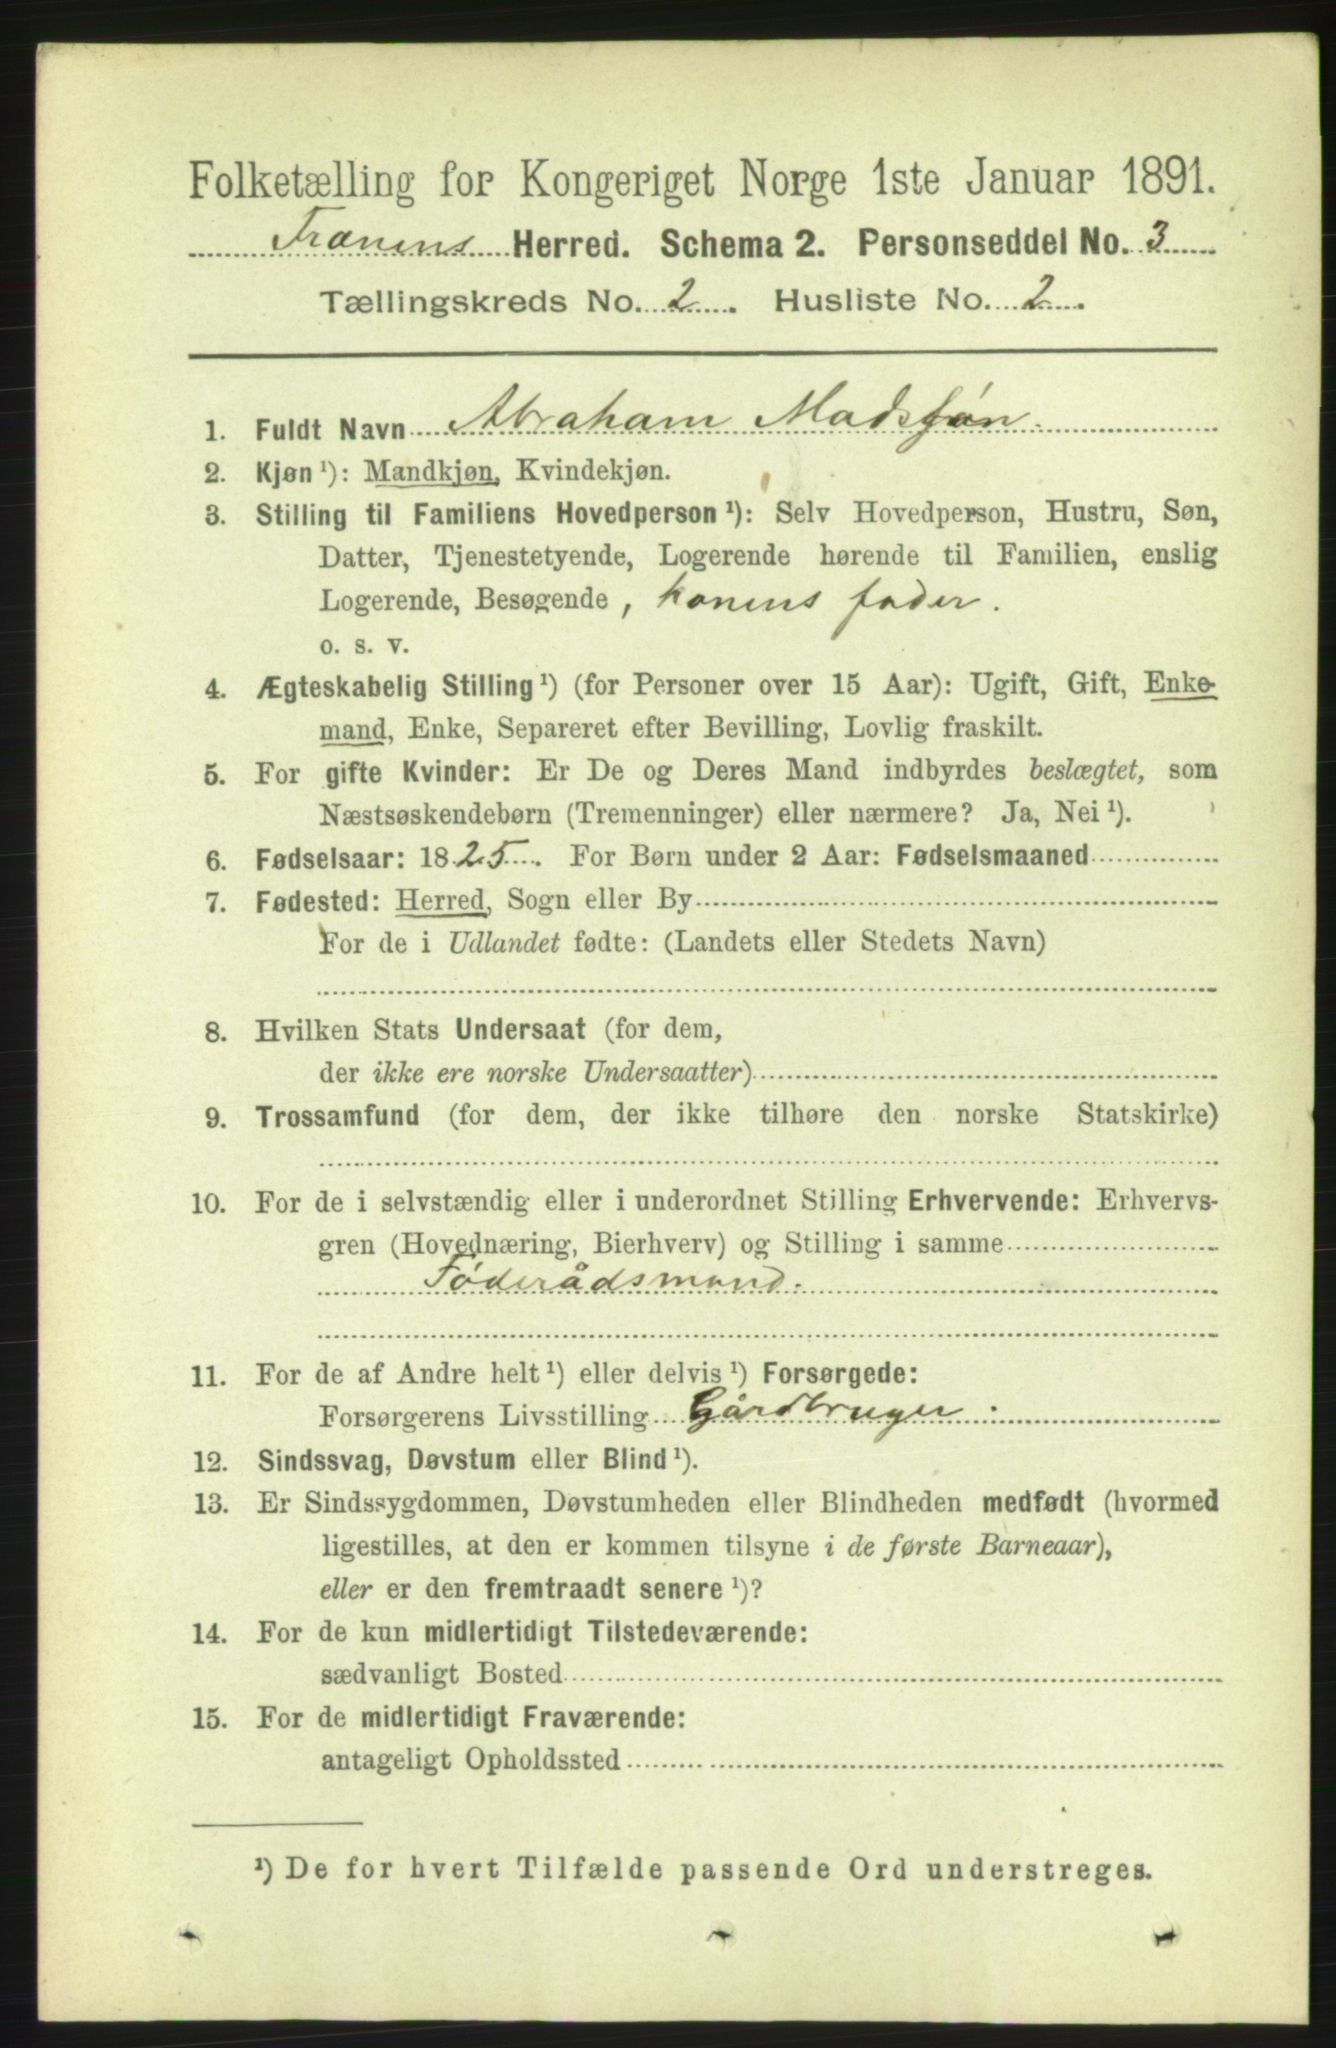 Folketælling for Kongeriget Norge 1ste Januar 1891.
Frænens Herred. Schema 2. Personseddel No. 3
Tællingskreds No. 2. Husliste No. 2.
1. Fuldt Navn Abraham Madsføn.
2. Kjøn ¹): Mandkjøn, Kvindekjøn.
3. Stilling til Familiens Hovedperson ¹): Selv Hovedperson, Hustru, Søn,
Datter, Tjenestetyende, Logerende hørende til Familien, enslig
Logerende, Besøgende, konens fader.
o. s. v.
4. Ægteskabelig Stilling ¹) (for Personer over 15 Aar): Ugift, Gift, Enke-
mand, Enke, Separeret efter Bevilling, Lovlig fraskilt.
5. For gifte Kvinder: Er De og Deres Mand indbyrdes beslægtet, som
Næstsøskendebørn (Tremenninger) eller nærmere? Ja, Nei ¹).
6. Fødselsaar: 1825. For Børn under 2 Aar: Fødselsmaaned
7. Fødested: Herred, Sogn eller By
For de i Udlandet fødte: (Landets eller Stedets Navn)
8. Hvilken Stats Undersaat (for dem,
der ikke ere norske Undersaatter)
9. Trossamfund (for dem, der ikke tilhøre den norske Statskirke)
10. For de i selvstændig eller i underordnet Stilling Erhvervende: Erhvervs-
gren (Hovednæring, Bierhverv) og Stilling i samme
Føderådsmand.
11. For de af Andre helt ¹) eller delvis ¹) Forsørgede:
Forsørgerens Livsstilling Gårdbruger.
12. Sindssvag, Døvstum eller Blind ¹).
13. Er Sindssygdommen, Døvstumheden eller Blindheden medfødt (hvormed
ligestilles, at den er kommen tilsyne i de første Barneaar),
eller er den fremtraadt senere ¹)?
14. For de kun midlertidigt Tilstedeværende:
sædvanligt Bosted
15. For de midlertidigt Fraværende:
antageligt Opholdssted
¹) De for hvert Tilfælde passende Ord understreges.